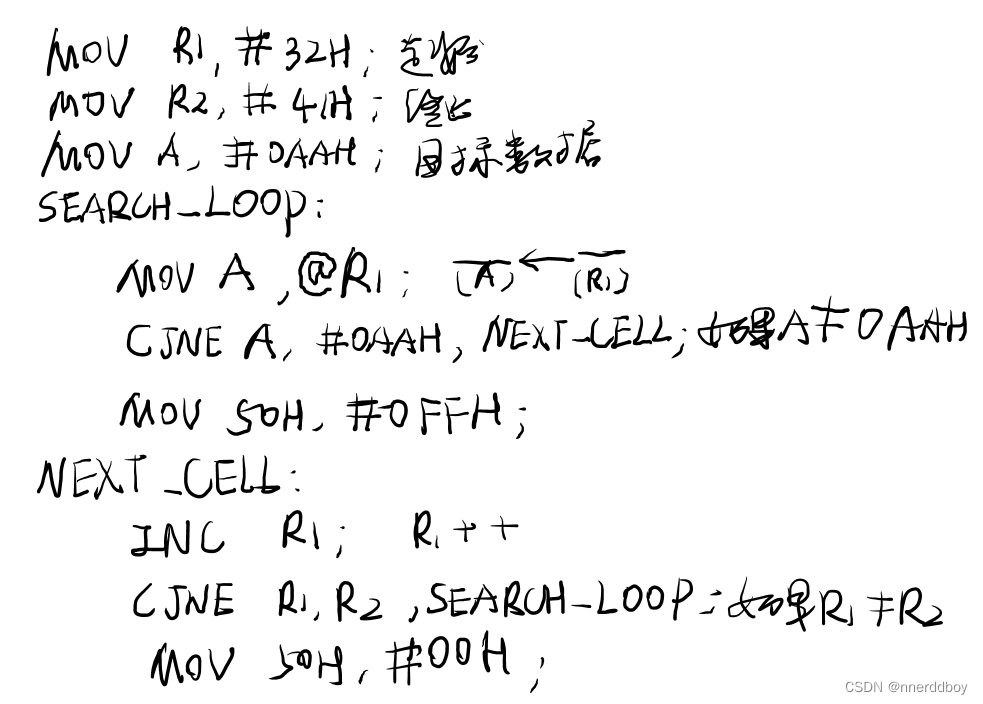 MOV R1, #32H;
MOV R2, #41H;
MOV A, #0AAH; 目标数据
SEARCH_LOOP:
MOV A, @R1; (A) ← (R1)
CJNE A, #0AAH, NEXT_CELL; 如果A≠0AAH
MOV 50H, #0FFH;
NEXT_CELL:
INC R1; R1++
CJNE R1, R2, SEARCH_LOOP; 如果R1≠R2
MOV 50H, #00H;
CSDN @nnerddboy